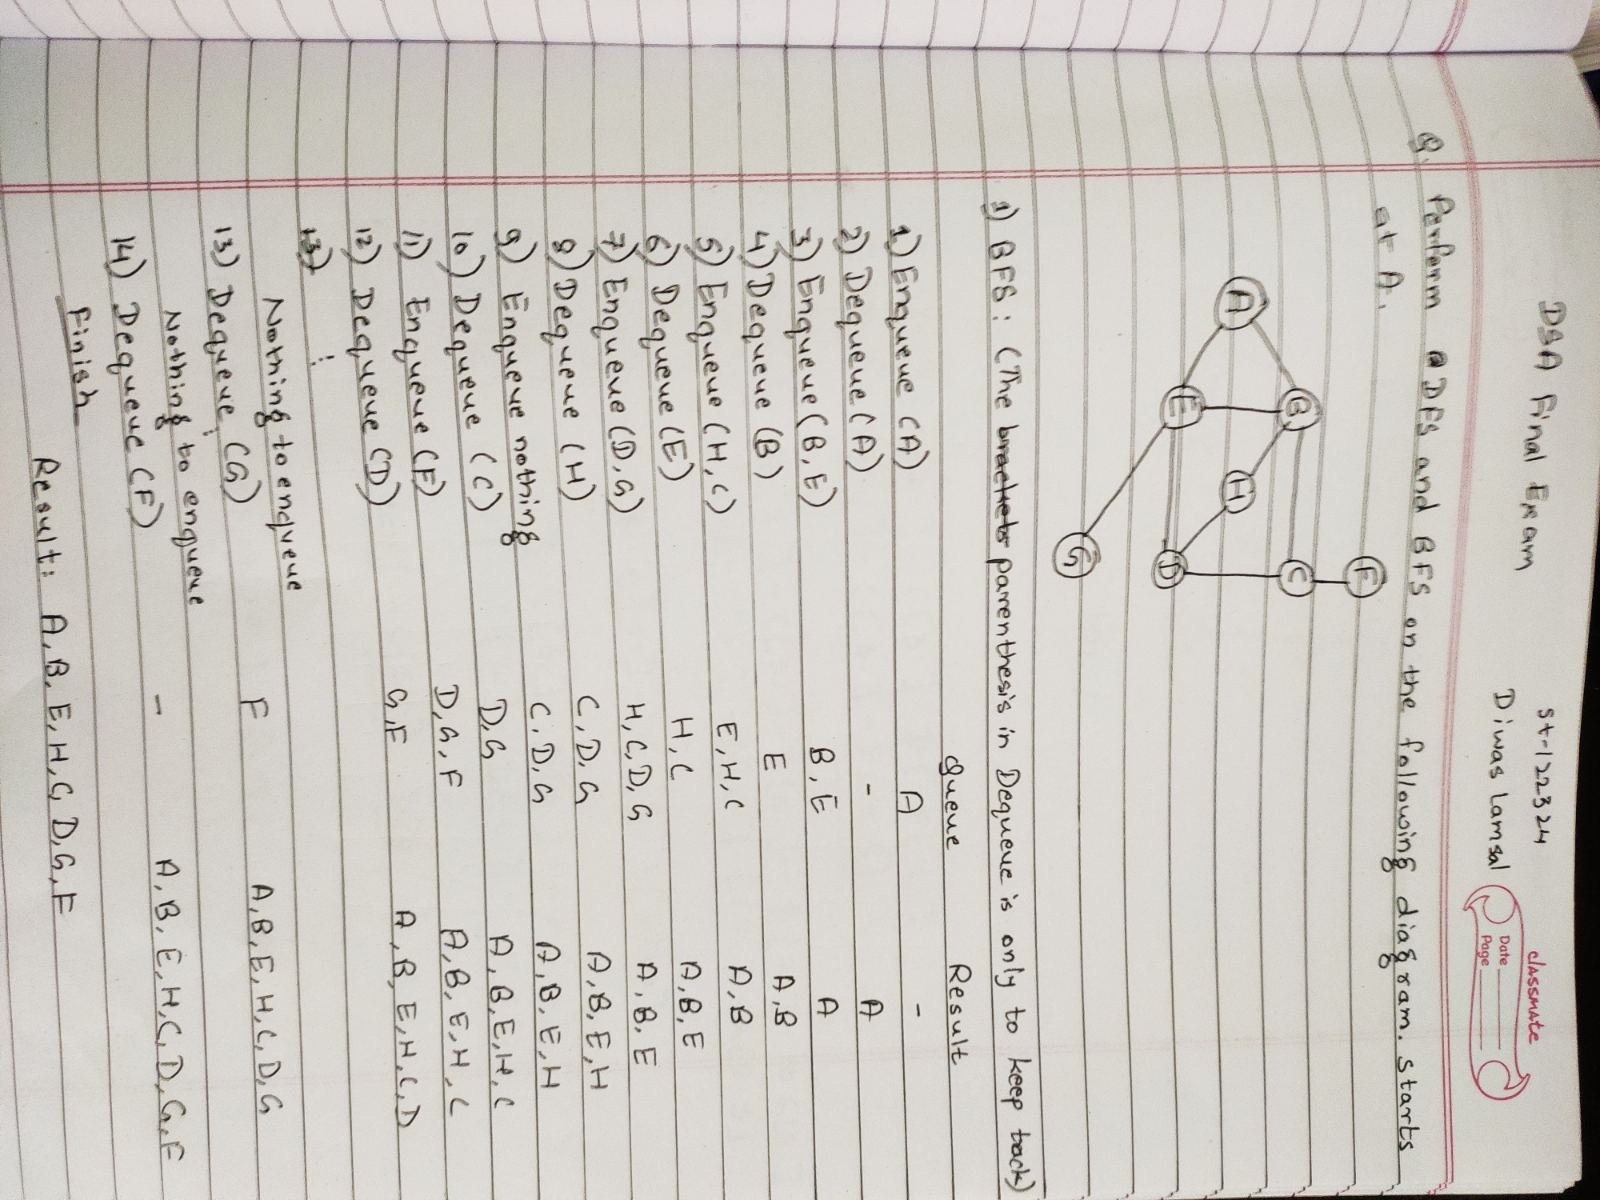 DSA Final Exam
St-122324
Diwas Lamsal
classmate
Date
Page
Q. Perform DFS and BFS on the following diagram. starts
at A.
F
B C
A H
E D
G
1) BFS: (The brackets parenthesis in Dequeue is only to keep tack)
Queue Result
1) Enqueue (A) A -
2) Dequeue (A) - A
3) Enqueue (B, E) B, E A
4) Dequeue (B) E A, B
5) Enqueue (H, C) E, H, C A, B
6) Dequeue (E) H, C A, B, E
7) Enqueue (D, G) H, C, D, G A, B, E
8) Dequeue (H) C, D, G A, B, E, H
9) Enqueue nothing C, D, G A, B, E, H
10) Dequeue (C) D, G A, B, E, H, C
11) Enqueue (F) D, G, F A, B, E, H, C
12) Dequeue (D) G, F A, B, E, H, C, D
13) ⋮
Nothing to enqueue
13) Dequeue (G) F A, B, E, H, C, D, G
Nothing to enqueue
14) Dequeue (F) - A, B, E, H, C, D, G, F
Finish
Result: A, B, E, H, C, D, G, F